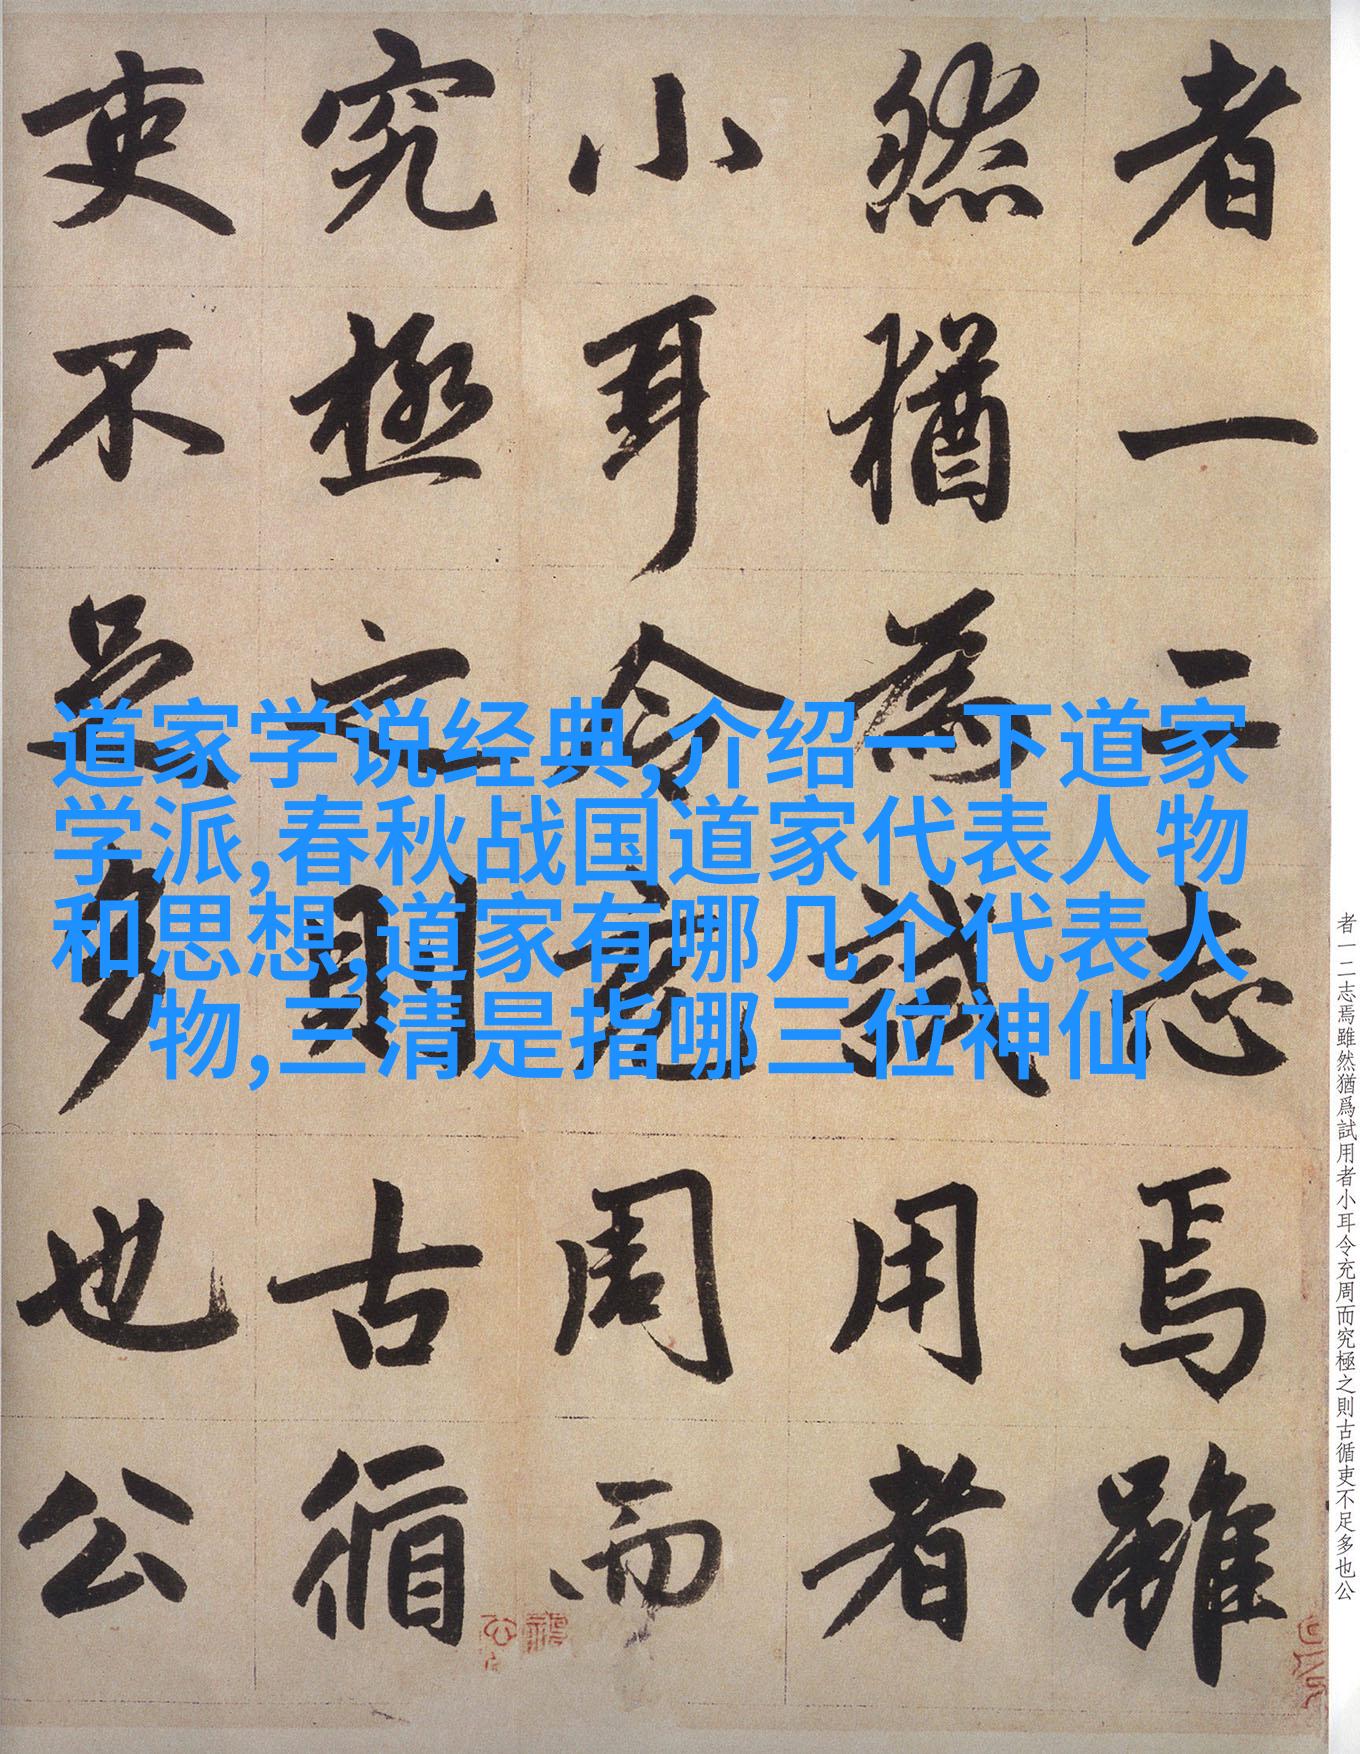 者一二志焉雖
然猶為試用者
小耳令充周而
究極之則古循
吏不足多也公
道家学说经典,介绍一下道家
学派,春秋战国道家代表人物
和思想,道家有哪几个代表人
物,三清是指哪三位神仙
者一二志焉雖然猶爲試用者小耳令充周而究極之則古循吏不足多也公